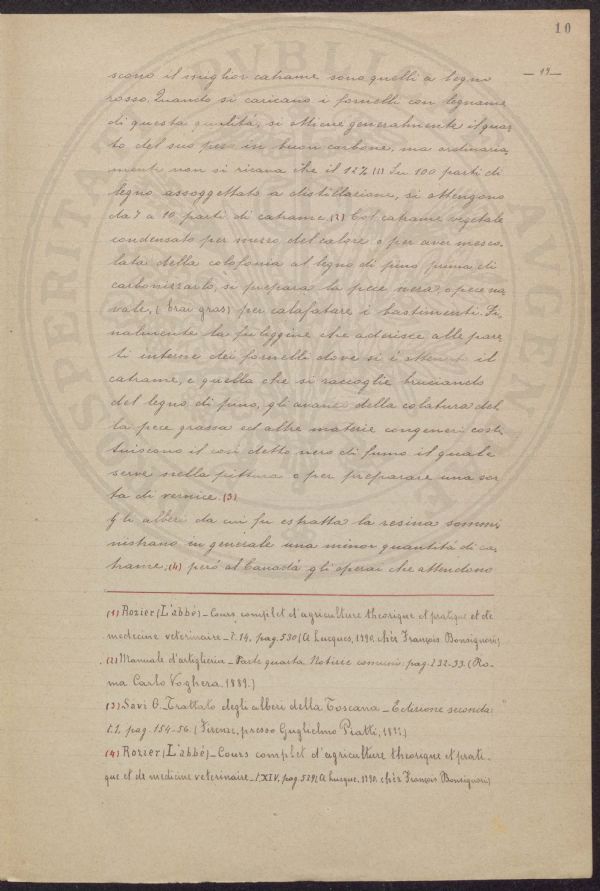 10
— 19 —
scono il miglior catrame sono quelli a legno
rosso. Quando si caricano i fornelli con legname
di questa qualità, si ottiene generalmente il quar
to del suo peso in buon carbone, ma ordinaria,
mente non si ricava che il 12% (1) Su 100 parti di
legno assoggettato a distillazione, si ottengono
da 7 a 10 parti di catrame. (2) Col catrame vegetale
condensato per mezzo del calore o per aver mesco,
lata della colofonia al legno di pino prima di
carbonizzarlo, si prepara la pece nera, o pece na,
vale, (brai gras) per calafatare i bastimenti. Fi,
nalmente la fuliggine che aderisce alle pare
ti interne dei fornelli dove si è ottenuto il
catrame, e quella che si raccoglie bruciando
del legno di pino, gli avanzi della colatura del,
la pece grassa ed altre materie congeneri costi
tuiscono il così detto nero di fumo il quale
serve nella pittura o per preparare una sor
ta di vernice. (3)
Gli alberi da cui fu estratta la resina sommi,
nistrano in generale una minor quantità di ca,
trame; (4) però al Canadà gli operai che attendono
(1) Rozier (L'abbé) – Cours complet d'agriculture theorique et pratique et de
medecine veterinaire – t. 14, pag. 530 (A Lucques, 1790. chéz François Bonsignori)
(2) Manuale d'artiglieria – Parte quarta Notizie comuni: pag. 132-33. (Ro-
ma Carlo Voghera. 1889.)
(3) Savi G. Trattato degli alberi della Toscana – Edizione seconda:
t. 1, pag. 154-56. (Firenze, presso Guglielmo Piatti,
(4) Rozier (L'abbé) – Cours complet d'agriculture theorique et prati-
que et de medicine veterinaire – t. XIV, pag. 529 (A Lucque, 1790. chéz François Bonsignori)